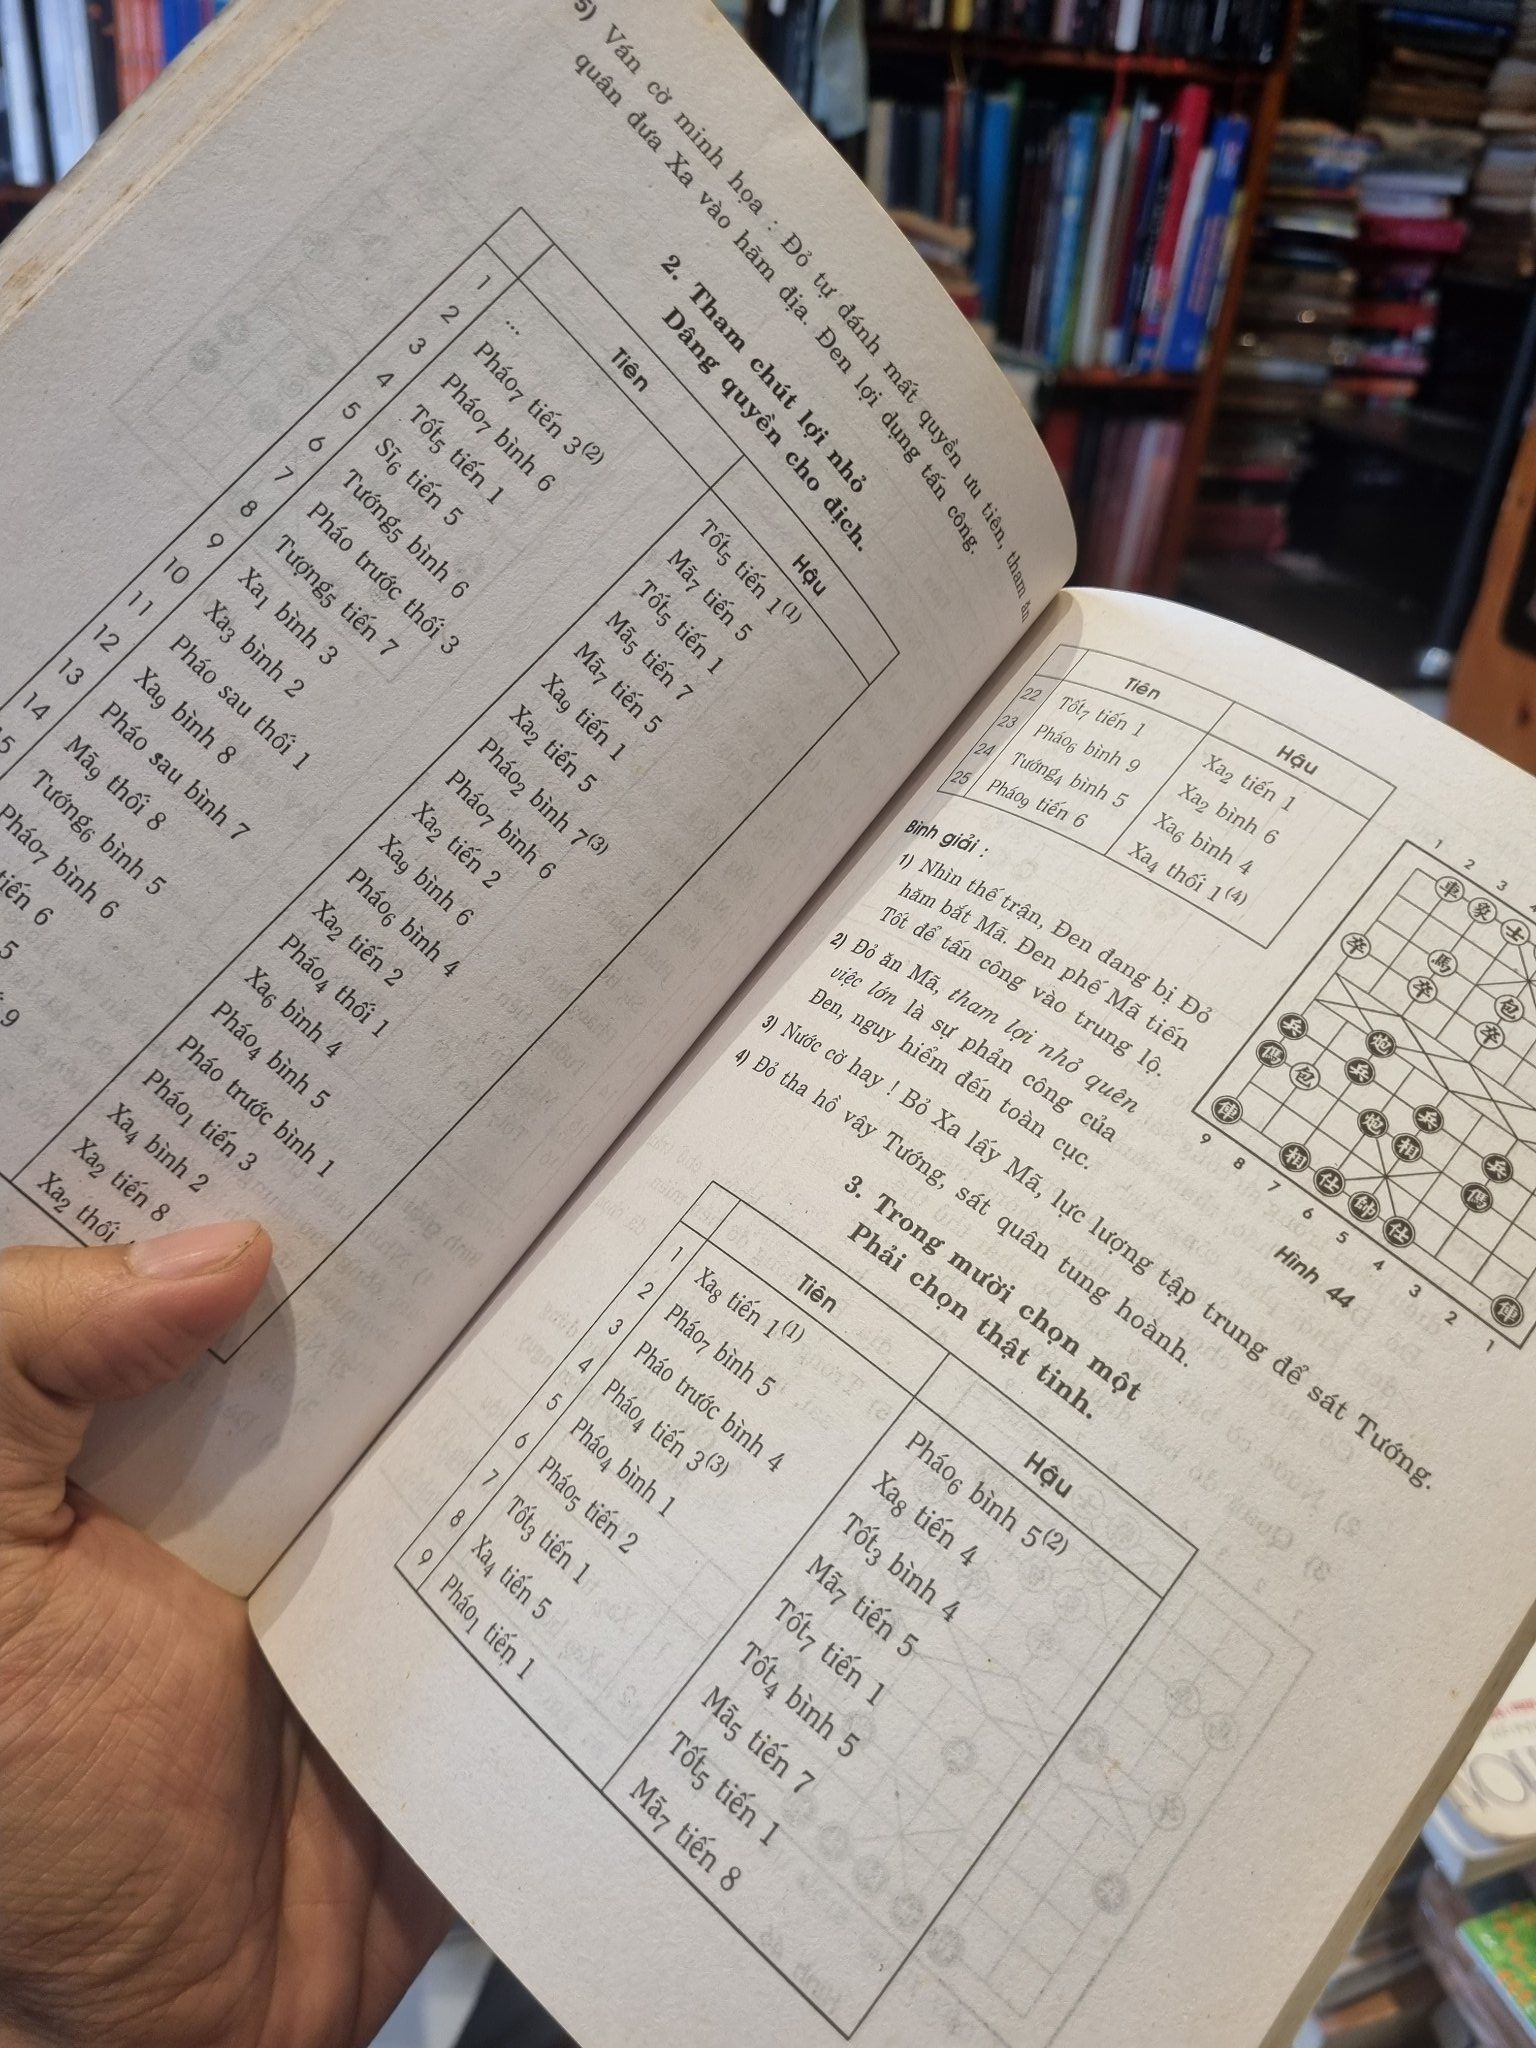 5) Ván cờ minh họa : Đỏ tự đánh mất quyền ưu tiên, tham ăn
quân đưa Xa vào hãm địa. Đen lợi dụng tấn công.
2. Tham chút lợi nhỏ
Dâng quyền cho địch.
Tiên Hậu
1 ... Tốt5 tiến 1(1)
2 Pháo7 tiến 3(2) Mã7 tiến 5
3 Pháo7 bình 6 Tốt5 tiến 1
4 Tốt5 tiến 1 Mã5 tiến 7
5 Sĩ6 tiến 5 Mã7 tiến 5
6 Tướng5 bình 6 Xa9 tiến 1
7 Pháo trước thối 3 Xa2 tiến 5
8 Tượng5 tiến 7 Pháo2 bình 7(3)
9 Xa1 bình 3 Pháo7 bình 6
10 Xa3 bình 2 Xa2 tiến 2
11 Pháo sau thối 1 Xa9 bình 6
12 Xa9 bình 8 Pháo6 bình 4
13 Pháo sau bình 7 Xa2 tiến 2
14 Mã9 thối 8 Pháo4 thối 1
5 Tướng6 bình 5 Xa6 bình 4
Pháo7 bình 6 Pháo4 bình 5
tiến 6 Pháo trước bình 1
5 Pháo1 tiến 3
9 Xa4 bình 2
Xa2 tiến 8
Xa2 thối
Tiên Hậu
22 Tốt7 tiến 1 Xa2 tiến 1
23 Pháo6 bình 9 Xa2 bình 6
24 Tướng4 bình 5 Xa6 bình 4
25 Pháo9 tiến 6 Xa4 thối 1(4)
Bình giải :
1) Nhìn thế trận, Đen đang bị Đỏ
hăm bắt Mã. Đen phế Mã tiến
Tốt để tấn công vào trung lộ.
2) Đỏ ăn Mã, tham lợi nhỏ quên
việc lớn là sự phản công của
Đen, nguy hiểm đến toàn cục.
3) Nước cờ hay ! Bỏ Xa lấy Mã, lực lượng tập trung để sát Tướng.
4) Đỏ tha hồ vây Tướng, sát quân tung hoành.
1 2 3
車 炮 士
卒 馬 卒 包 卒
兵 炮
傌 包 兵
炮 相 兵 兵
俥 相 仕 帥 仕 傌 俥
9 8 7 6 5 4 3 2 1
Hình 44
3. Trong mười chọn một
Phải chọn thật tinh.
Tiên Hậu
1 Xa8 tiến 1(1) Pháo6 bình 5(2)
2 Pháo7 bình 5 Xa8 tiến 4
3 Pháo trước bình 4 Tốt3 bình 4
4 Pháo4 tiến 3(3) Mã7 tiến 5
5 Pháo4 bình 1 Tốt7 tiến 1
6 Pháo5 tiến 2 Tốt4 bình 5
7 Tốt3 tiến 1 Mã5 tiến 7
8 Xa4 tiến 5 Tốt5 tiến 1
9 Pháo1 tiến 1 Mã7 tiến 8